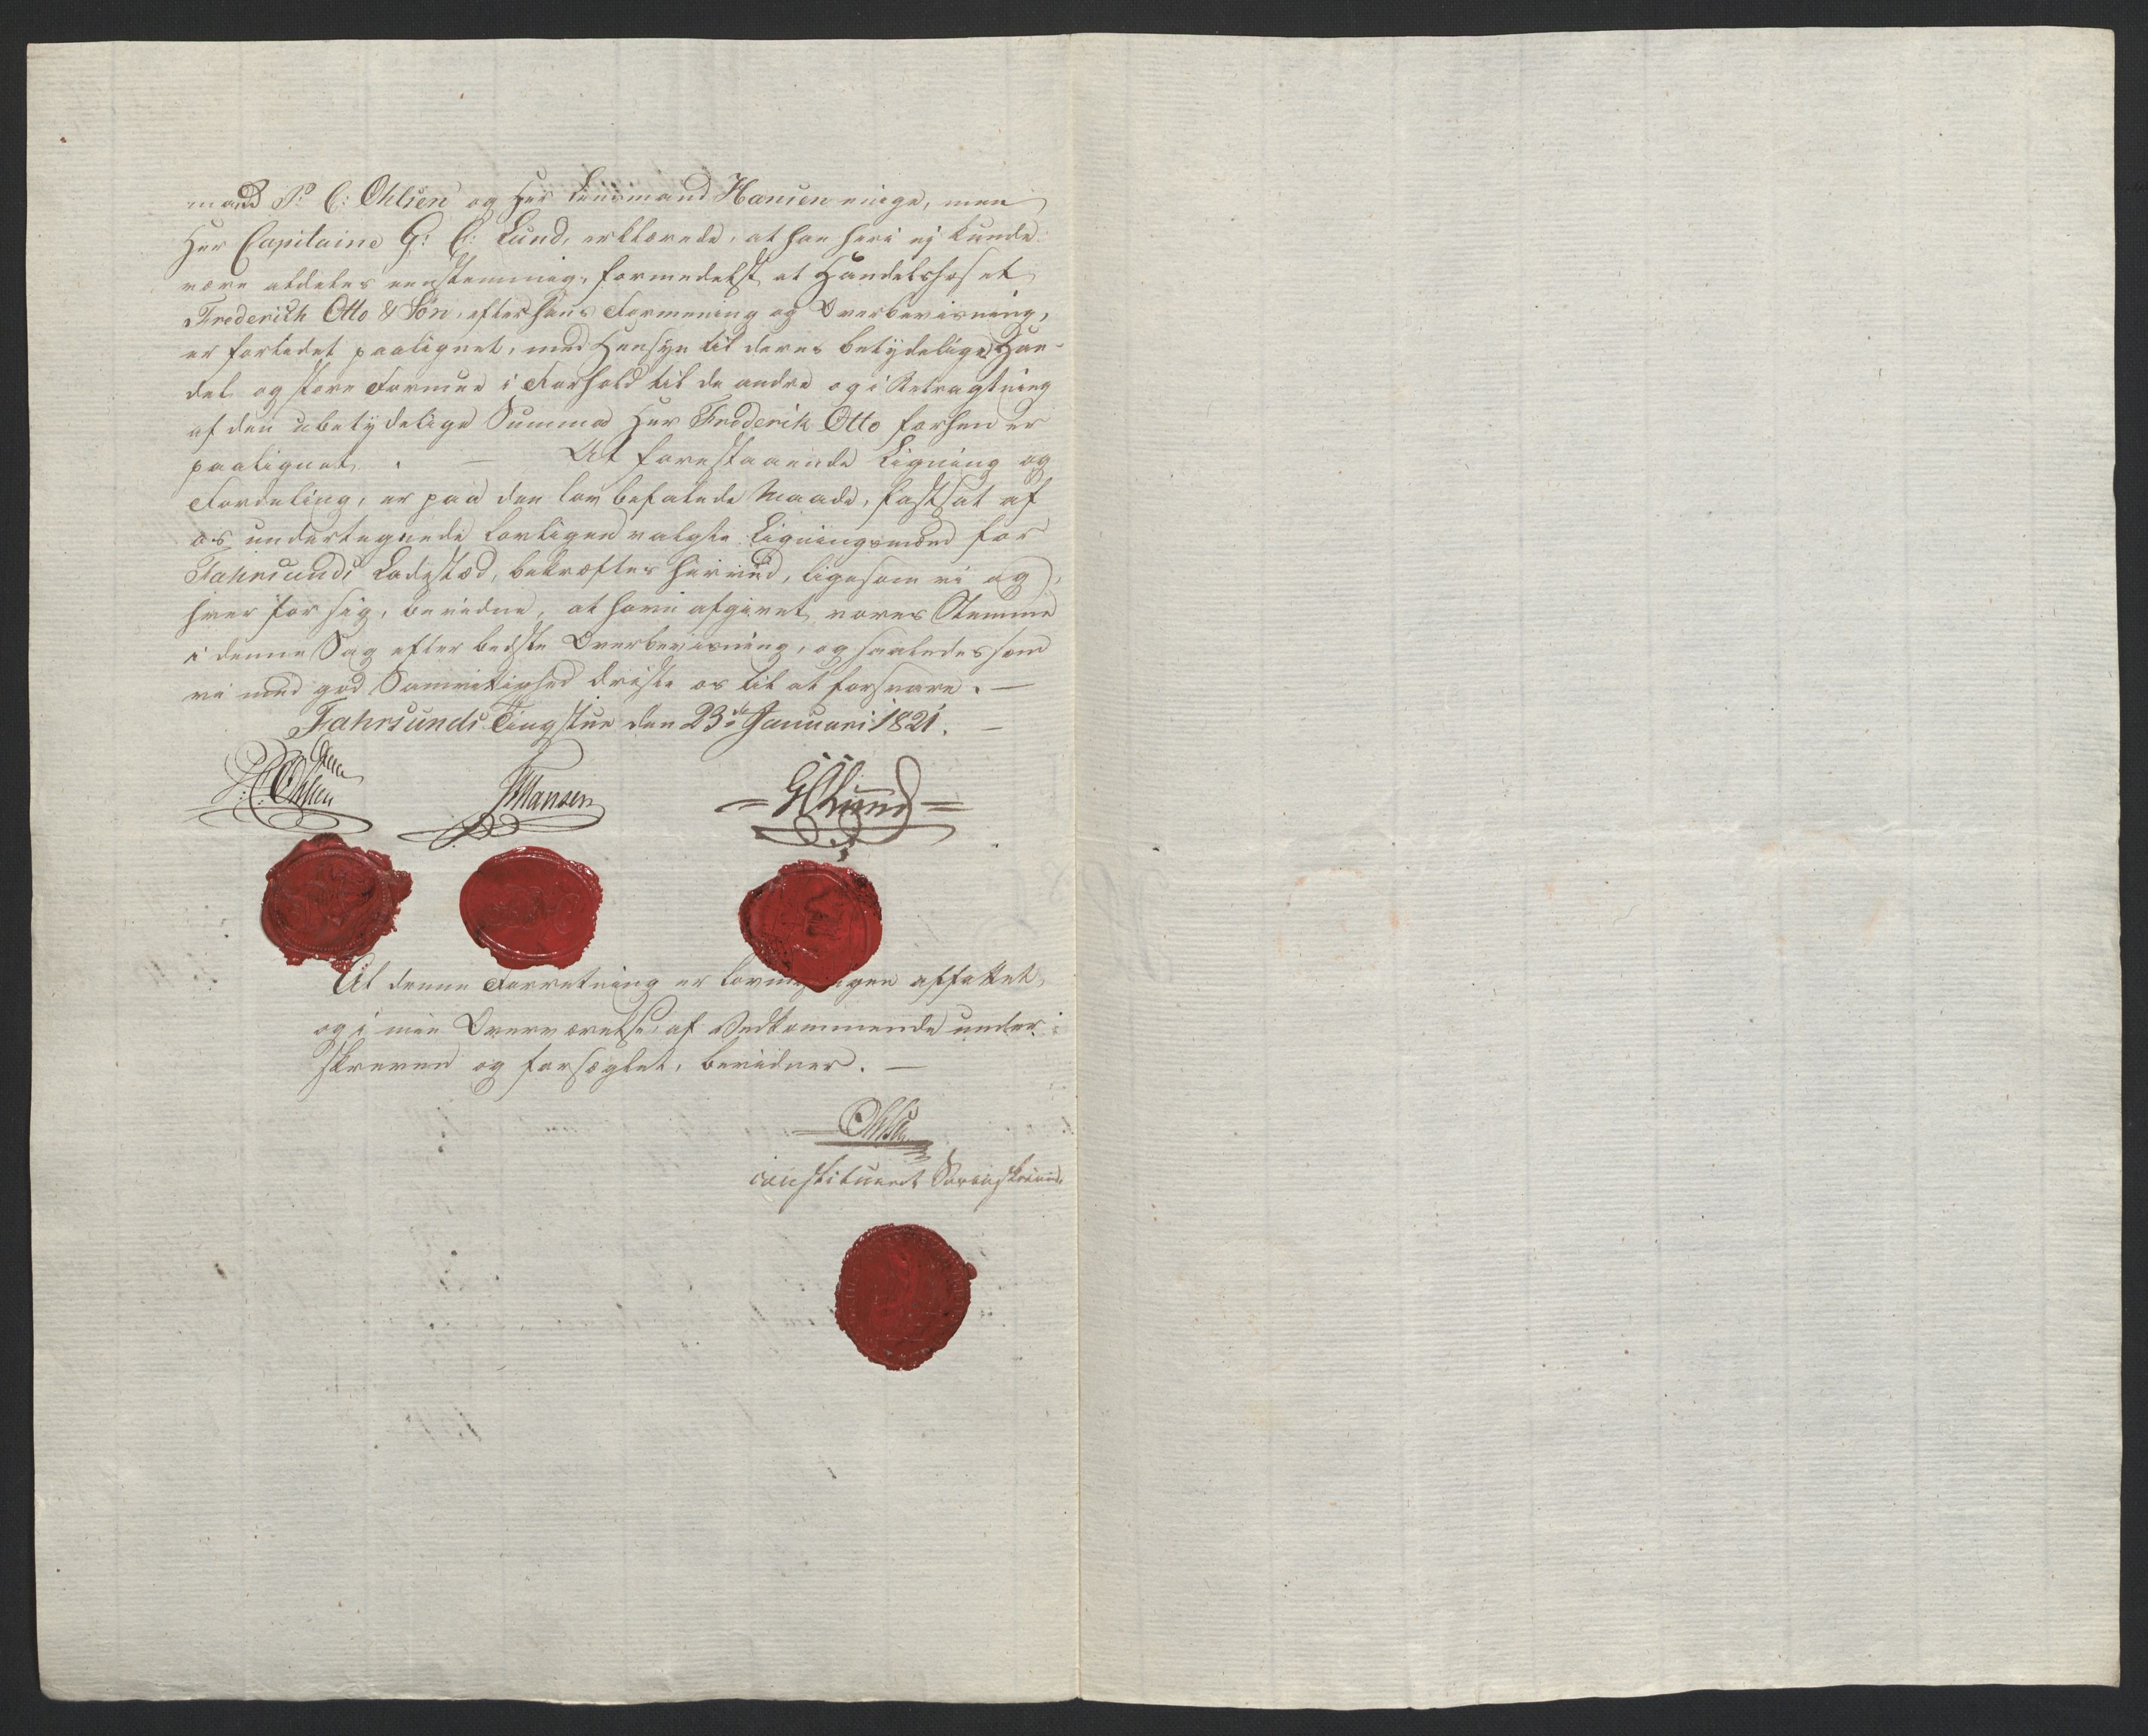 mand P: C: Ohlsen og Her Lensmand Hansen enige, men
Her Capitaine G: C: Lund, erklærede, at han heri ej kunde
være aldeles eenstemmig, formedelst at Handelshuset
Frederich Otto & Søn, efter hans Formening og Overbeviisning,
er forledet paalignet, med Hensyn til deres betydelige Han-
del og store Formue i Forhold til de andre og i Betragtning
af den ubetydelige Summa Her Frederik Otto forhen er
paalignet. — At forestaaende Ligning og
Fordeling, er paa den lovbefalede Maade, fastsat af
os undertegnede lovligen valgte Ligningsmænd for
Fahrsunds Ladestæd, bekræftes herved, ligesom vi og,
hver for sig, bevidne, at have afgivet vores Stemme
i denne Sag efter bedste Overbeviisning, og saaledes som
vi med god Samvittighed driste os til at forsvare. —
Fahrsunds Tingstue den 23de Januari 1821. —
P: C: Ohlsen Hansen = G C Lund =
At denne Forretning er lovmæssigen affattet,
og i min Overværelse, af Vedkommende under-
skreven og forseglet, bevidner. —
Ohlsen
constitueret Sorenskriver